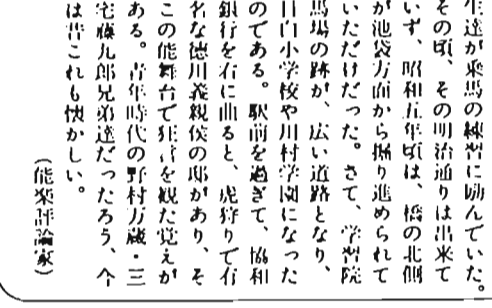 生達が乗馬の練習に励んでいた。
その頃、その明治通りは出来て
いず、昭和五年頃は、橋の北側
が池袋方面から掘り進められて
いただけだった。さて、学習院
馬場の跡が、広い道路となり、
目白小学校や川村学園になった
のである。駅前を過ぎて、協和
銀行を右に曲ると、虎狩りで有
名な徳川義親侯の邸があり、そ
この能舞台で狂言を観た覚えが
ある。青年時代の野村万蔵・三
宅藤九郎兄弟達だったろう、今
は昔これも懐かしい。
（能楽評論家）